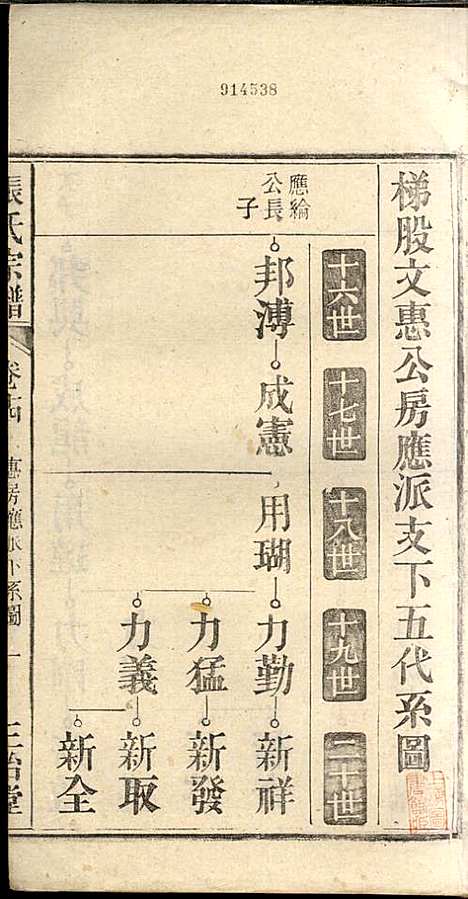 914538
梯股文惠公房應派支下五代系圖
十六世
十七世
十八世
十九世
二十世
應綸
公長
子
邦溥
成憲
用瑚
力勤
新祥
力猛
新發
力義
新取
新全
張氏宗譜
卷十四
惠房應派下系圖
一
三治堂